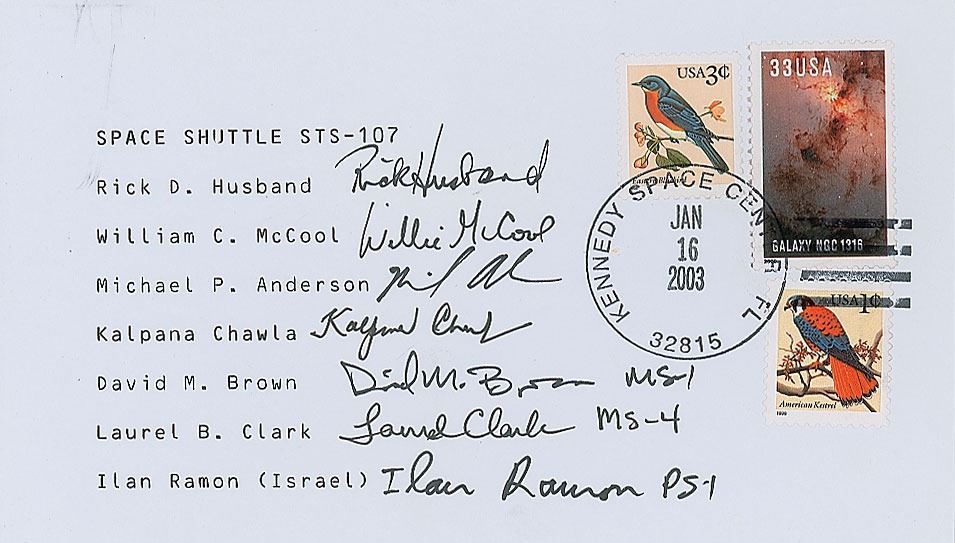 SPACE SHUTTLE STS-107
Rick D. Husband Rick Husband
William C. McCool Willie McCool
Michael P. Anderson
Kalpana Chawla Kalpana Chawla
David M. Brown David M. Brown MS-1
Laurel B. Clark Laurel Clark MS-4
Ilan Ramon (Israel) Ilan Ramon PS-1
USA3¢
Eastern Bluebird
33USA
GALAXY NGC 1316
USA1¢
American Kestrel
1999
KENNEDY SPACE CENTER, FL
JAN
16
2003
32815